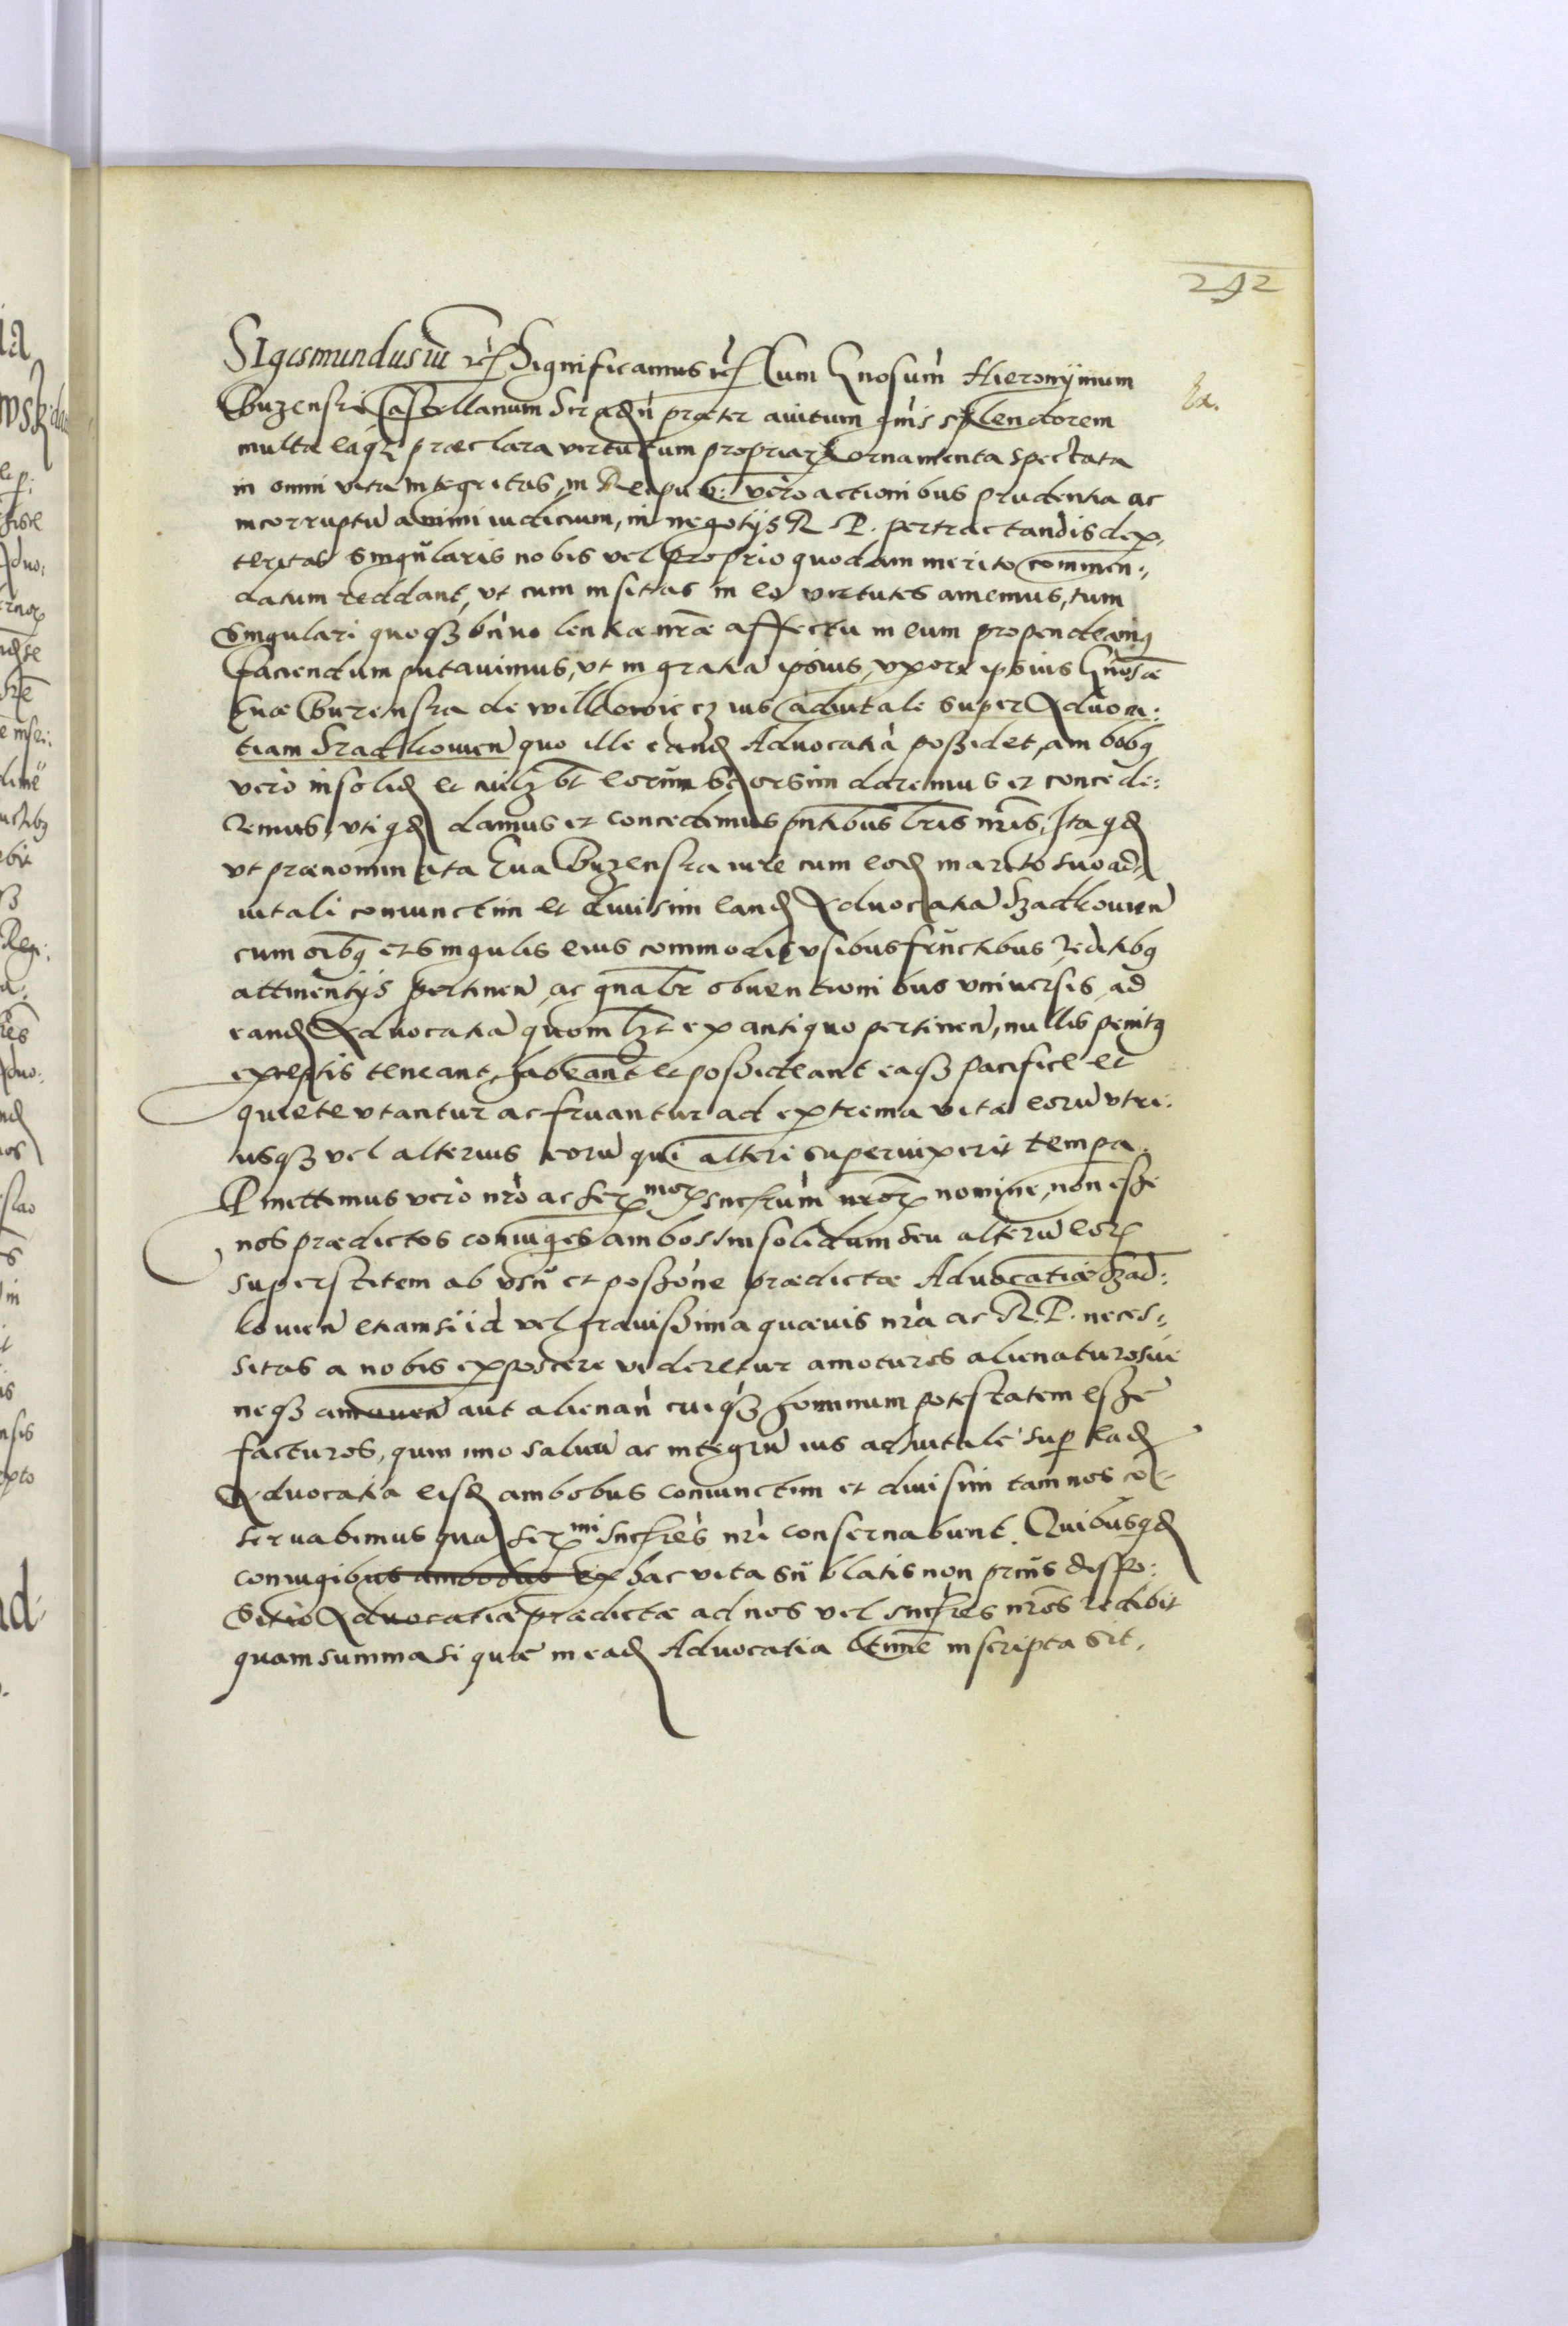 292
Sigismundus III etc. Significamus etc. Cum Gnosum Hieronymum
Ex.
Buzenski Castellanum Siradn praeter auitum gnis splendorem
multa eaqz praeclara virtutum propriarum ornamenta spectata
in omni vita integritas, in Reipub: vero actionibus prudentia ac
incorruptū animi iudicium, in negotijs R P. pertractandis dex,
teritas singularis nobis vel proprio quodam merito commen:,
datum reddant, vt cum insitas in eo virtutes amemus, tum
singulari quoqz bnuolentiae nrae affectu in eum propendeamq
faciendum putauimus, vt in gratiā ipsius, vxori ipsius Gnosae
Euae Buzenska de wilkowic cz ius aduitale super Aduoca:
tiam Szadkouien quo ille eand Aduocatiā possidet, ambobq
vero insolid et cuilzbt eorum seorsim daremus et concede:
remus, vti qd damus et concedimus pntibus lris nris, Ita qd
vt praenominata Eua Buzenska iure cum eod marito suo ad,
uitali coniunctim et diuisim eand Aduocatiā Szadkouien
cum oibq et singulis eius commodis vsibus fructibus reditibq
attinentijs pertinen ac gnalr obuentionibus vniuersis ad
eand Aduocatiā quomlzt ex antiquo pertinen, nullis penitq
exceptis teneant, habeant et possideant eaqz pacifice et
quiete vtantur ac fruantur ad extrema vitae eorū vtri:
usqz vel alterius eorū qui alteri superuixerit tempa.
Pmittimus vero nro ac Ser morum sucssrum nrorum nomine, non esse
nos praedictos coniuges ambos insolidum seu alterū eorum
superstitem ab vsu et possone praedictae Aduocatiae Szad:
kouien etiamsi id vel grauissima quaeuis nra ac R. P. neces:,
sitas a nobis exposcere videretur amoturos alienaturosue
neqz amouen aut alienan cuiqz hominum potestatem esse
facturos, quin imo saluū ac integrū ius aduitale sup ead
Aduocatia eisd ambobus coniunctim et diuisim tam nos co-
seruabimus qua Ser mi sucsres nri conseruabunt. Quibusqd
coniugibus ambobus ex hac vita sublatis non prius dispo:
sitio Aduocatiae praedictae ad nos vel sucsres nros redibit
quam summa si quae in ead Aduocatia ltime inscripta sit.